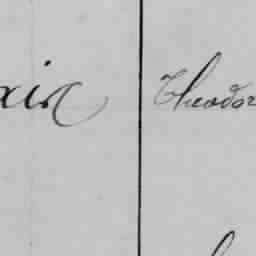 xin Theodor